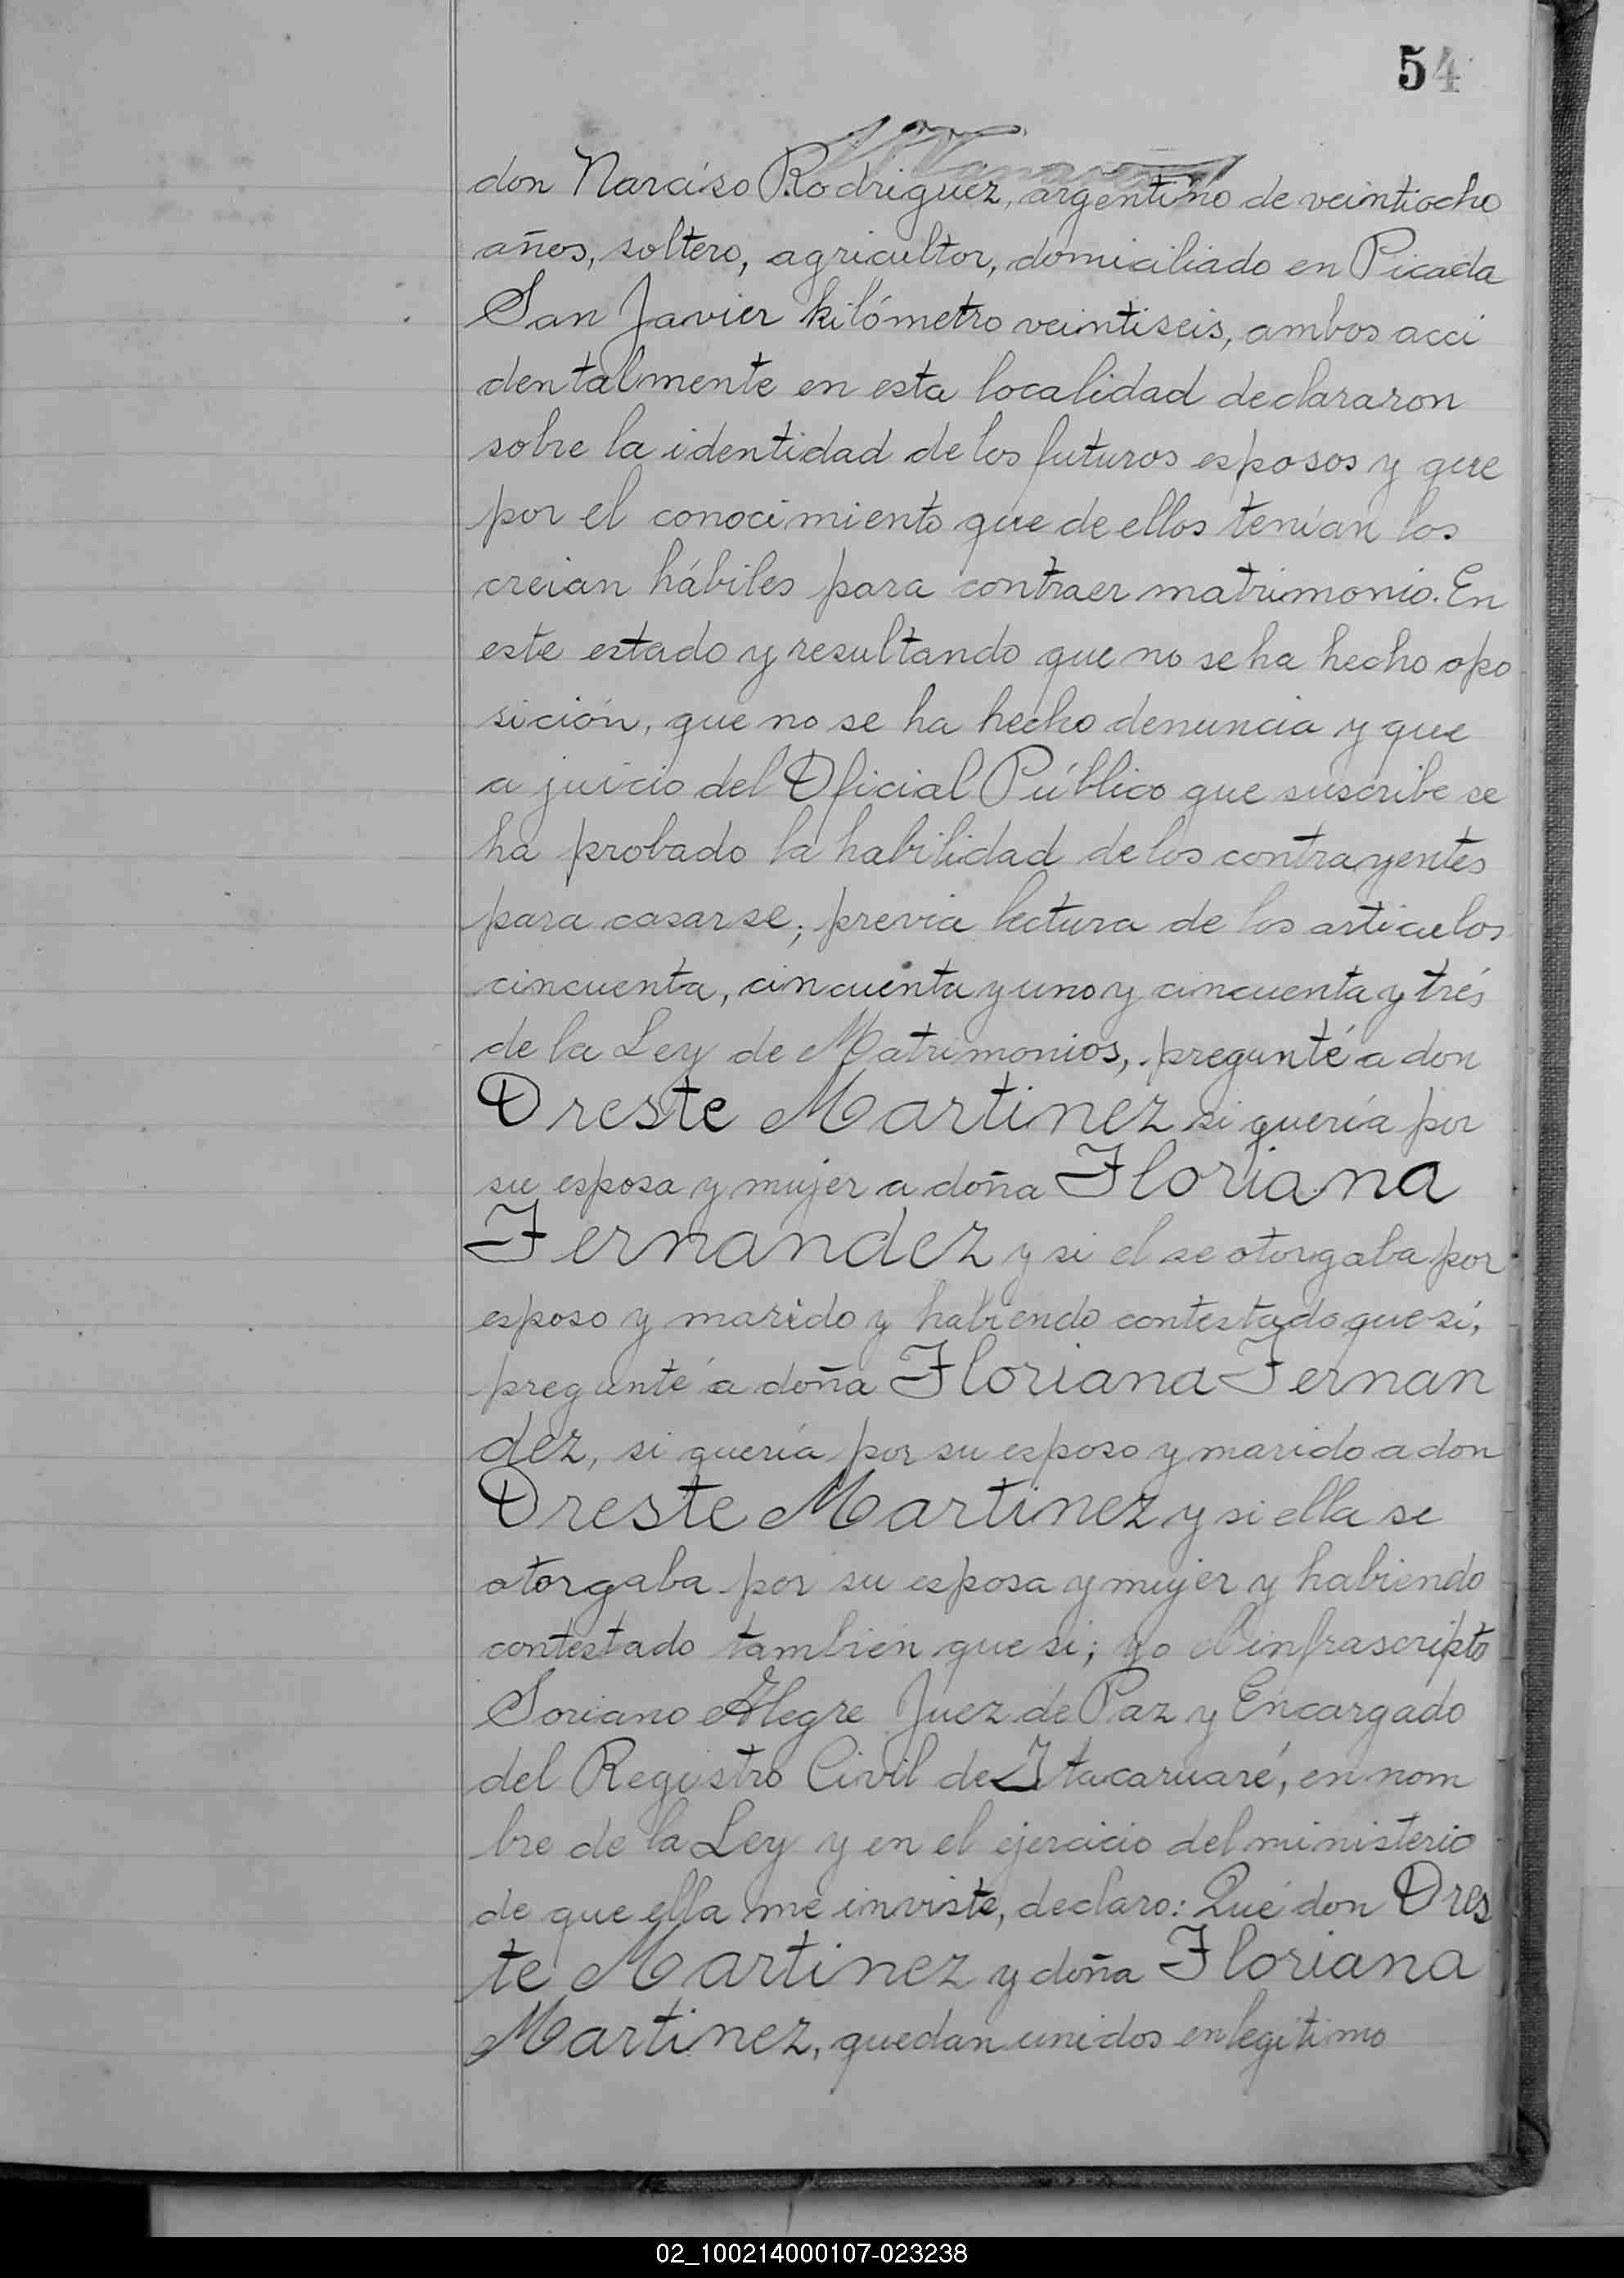 54
don Narciso Rodriguez, argentino de veintiocho
años, soltero, agricultor, domiciliado en Picada
San Javier kilómetro veintiseis, ambos acci
dentalmente en esta localidad declararon
sobre la identidad de los futuros esposos y que
por el conocimiento que de ellos tenían los
creian hábiles para contraer matrimonio. En
este estado y resultando que no se ha hecho opo
sición, que no se ha hecho denuncia y que
a juicio del Oficial Público que suscribe se
ha probado la habilidad de los contrayentes
para casarse; previa lectura de los articulos
cincuenta, cincuenta y uno y cincuenta y trés
de la Ley de Matrimonios, pregunté a don
Oreste Martinez si quería por
su esposa y mujer a doña Floriana
Fernandez y si el se otorgaba por
esposo y marido y habiendo contestado que si,
pregunté a doña Floriana Fernan
dez, si quería por su esposo y marido a don
Oreste Martinez y si ella se
otorgaba por su esposa y mujer y habiendo
contestado también que si; yo el infrascripto
Soriano Alegre Juez de Paz y Encargado
del Registro Civil de Itacaruaré, en nom
bre de la Ley y en el ejercicio del ministerio
de que ella me inviste, declaro: Qué don Ores
te Martinez y doña Floriana
Martinez, quedan unidos en legitimo
02_100214000107-023238